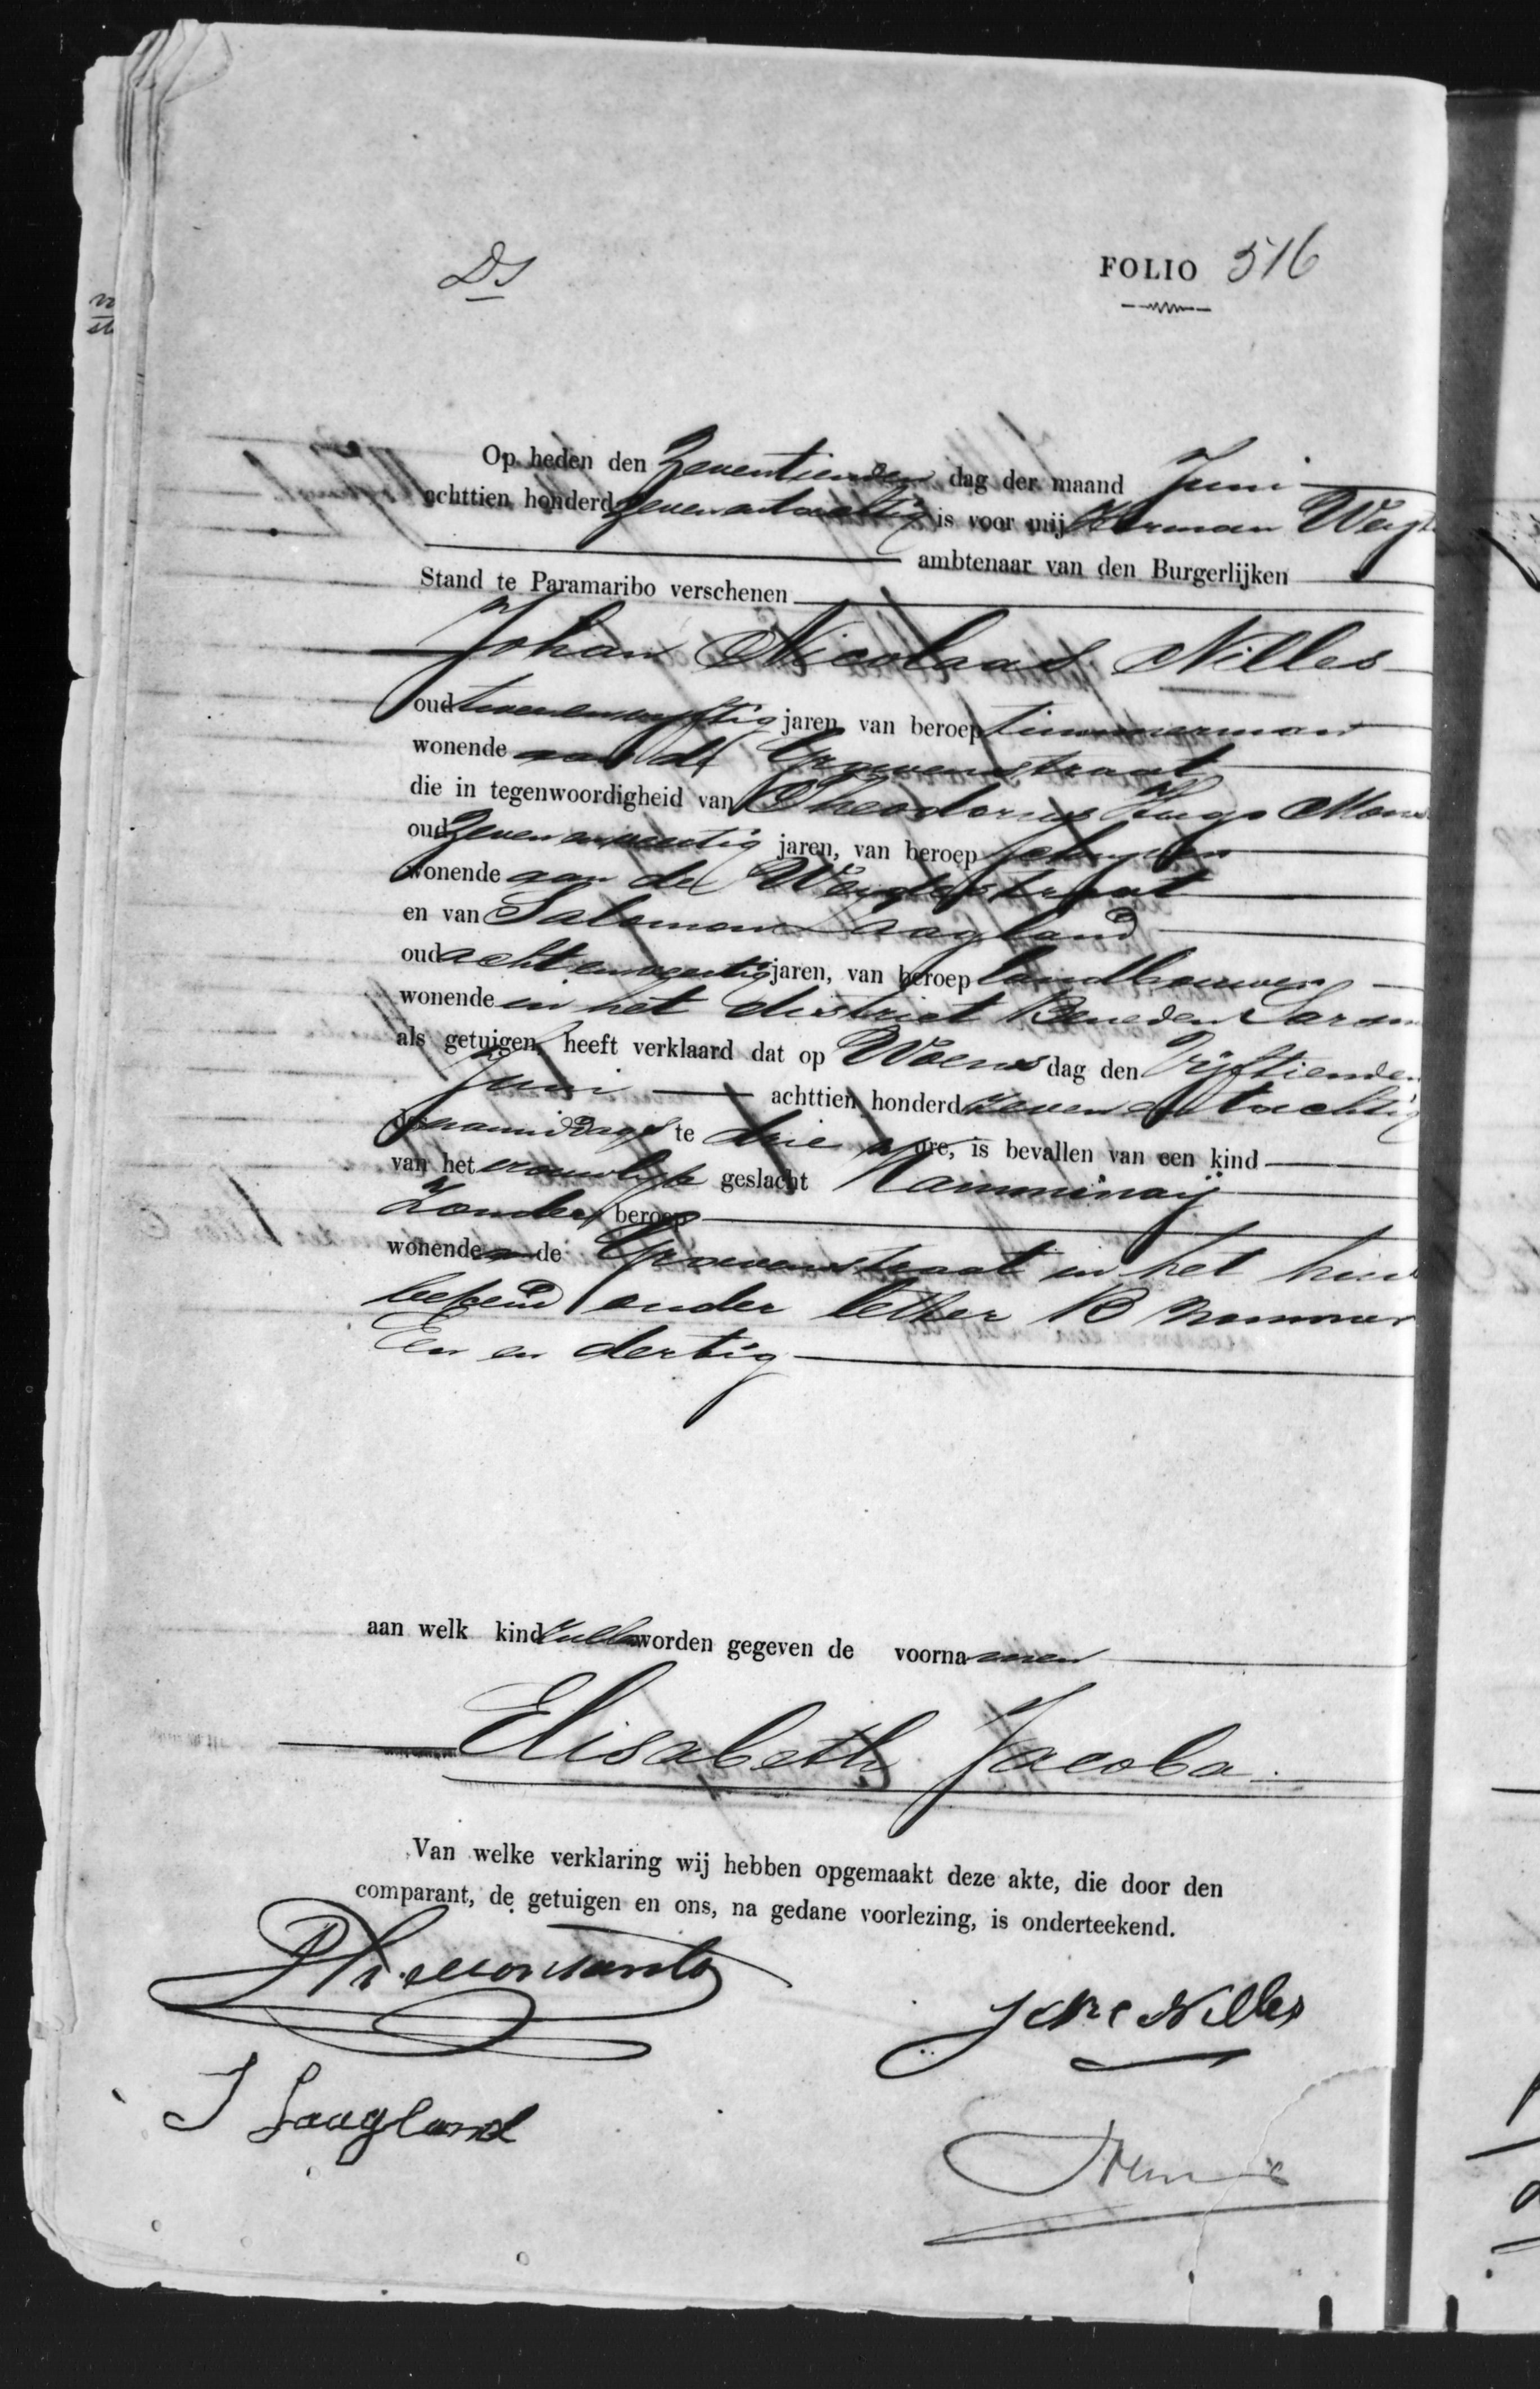 DS
FOLIO 516
Op heden den Zeventienden dag der maand Juni
achttien honderd zevenentachtig is voor mij Herman Weyt
ambtenaar van den Burgerlijken
Stand te Paramaribo verschenen
Johan Nicolaas Nilles
oud tweeenvyftig jaren van beroep timmerman
wonende aan de Gravenstraat
die in tegenwoordigheid van Theodorus Hugo Mon
oud Zevenenveertig jaren, van beroep
wonende aan de Weidestraat
en van Salomon Laagland
oud achtenveertig jaren, van beroep landbouwer
wonende in het district Beneden Saram
als getuigen, heeft verklaard dat op Woensdag den Vijftienden
Juni achttien honderd zeven en tachtig
te drie ure, is bevallen van een kind
van het vrouwelijk geslacht Kamminaij
Zonder beroep
wonende a de Gravenstraat in het huis
bekend onder letter B nommer
Een en dertig
aan welk kind zullen worden gegeven de voornamen
Elisabeth Jacoba.
Van welke verklaring wij hebben opgemaakt deze akte, die door den
comparant, de getuigen en ons, na gedane voorlezing, is onderteekend.
Nilles
Laagland